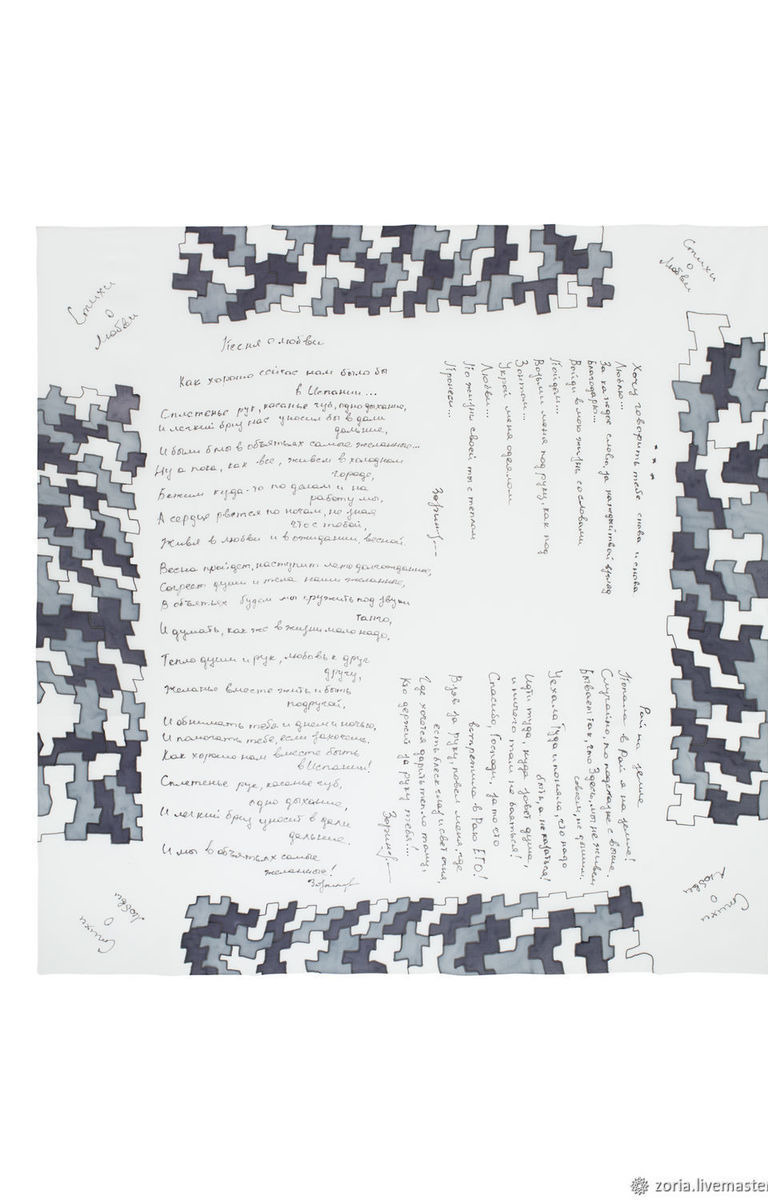 Стихи
о
Любви
Стихи
о
Любви
Песня о любви
Как хорошо сейчас нам было бы
в Испании...
Сплетенье рук, касанье губ, одно дыханье,
и легкий бриз нас уносил бы в дали
дальние,
И были б мы в объятьях самые желанные...
Ну а пока, как все, живем в холодном
городе,
Бежим куда-то по делам и на
работу мы,
А сердце рвется по ночам, не зная
что с тобой,
Живя в любви и в ожидании, весной.
Весна пройдет, наступит лето долгожданное,
Согреет души и тела наши желанные,
В объятьях будем мы кружить под звуки
танго,
И думать, как же в жизни мало надо,
Тепло души и рук, любовь к друг
другу,
Желанье вместе жить и быть
подругой.
И обнимать тебя и днем и ночью,
И помогать тебе, если захочешь.
Как хорошо нам вместе быть
в Испании!
Сплетенье рук, касанье губ,
одно дыханье,
И легкий бриз уносит в дали
дальние,
И мы в объятьях самые
желанные!
* * *
Хочу говорить тебе снова и снова
Люблю...
За каждое слово, за каждый твой взгляд
Благодарю...
Войди в мою жизнь со словами
Пойдем...
Возьми меня под руку, как под
Зонтом...
Укрой меня одеялом
Любви...
По жизни своей ты с теплом
Пронеси...
Рай на земле
Попала в Рай я на земле!
Случайно, по подсказке с выше.
Бывает так, что Здесь, мы не живем,
совсем, не дышим.
Уехала Туда и поняла, что надо
быть, а не казаться!
Идти туда, куда зовет душа,
и ничего там не бояться!
Спасибо, Господи, за то что
встретила в Раю ЕГО!
Взяв за руку, повел меня, где
есть блеск глаз и свет огня,
Где хочется дарить тепло тому,
Кто держит за руку тебя!...
Стихи
о
Любви
Стихи
о
Любви
zoria.livemaster